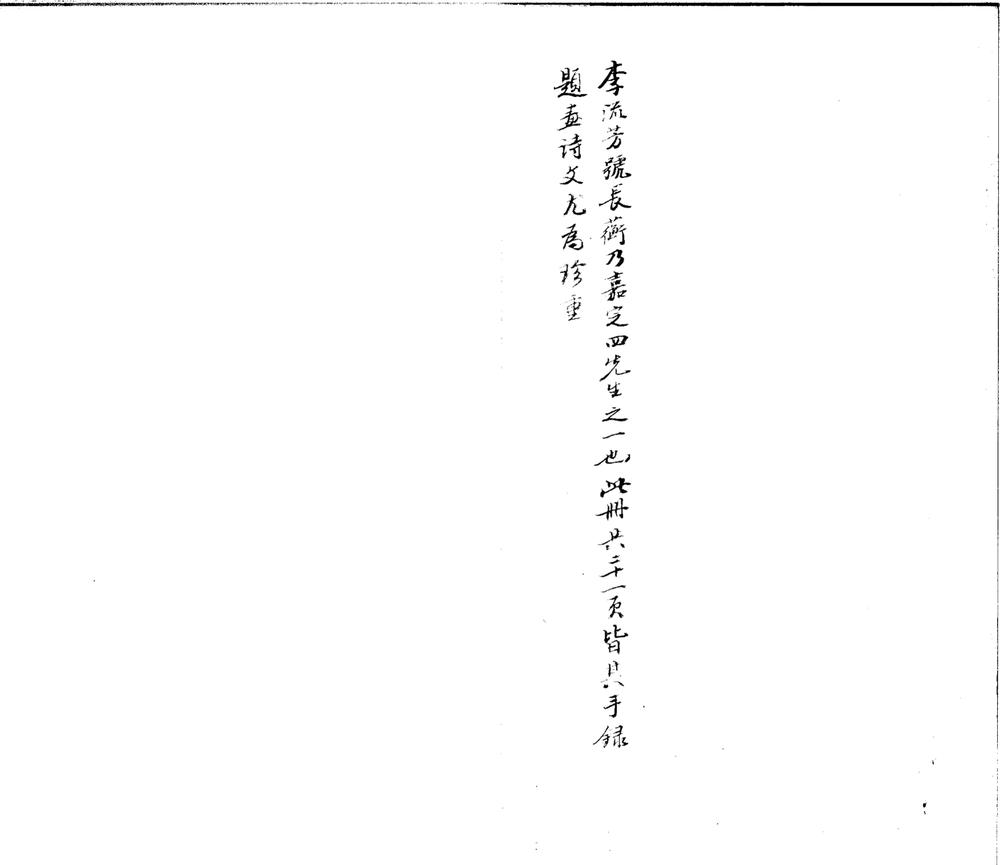 李流芳號長蘅乃嘉定四先生之一也此冊共二十一页皆其手録
題畫诗文尤為珍重